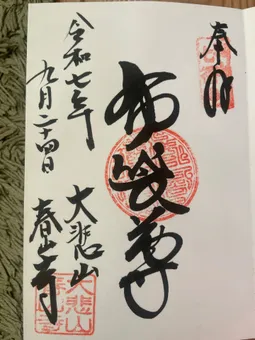 奉拝
布袋尊
令和七年
九月二十四日
大悲山
春山寺
大悲山